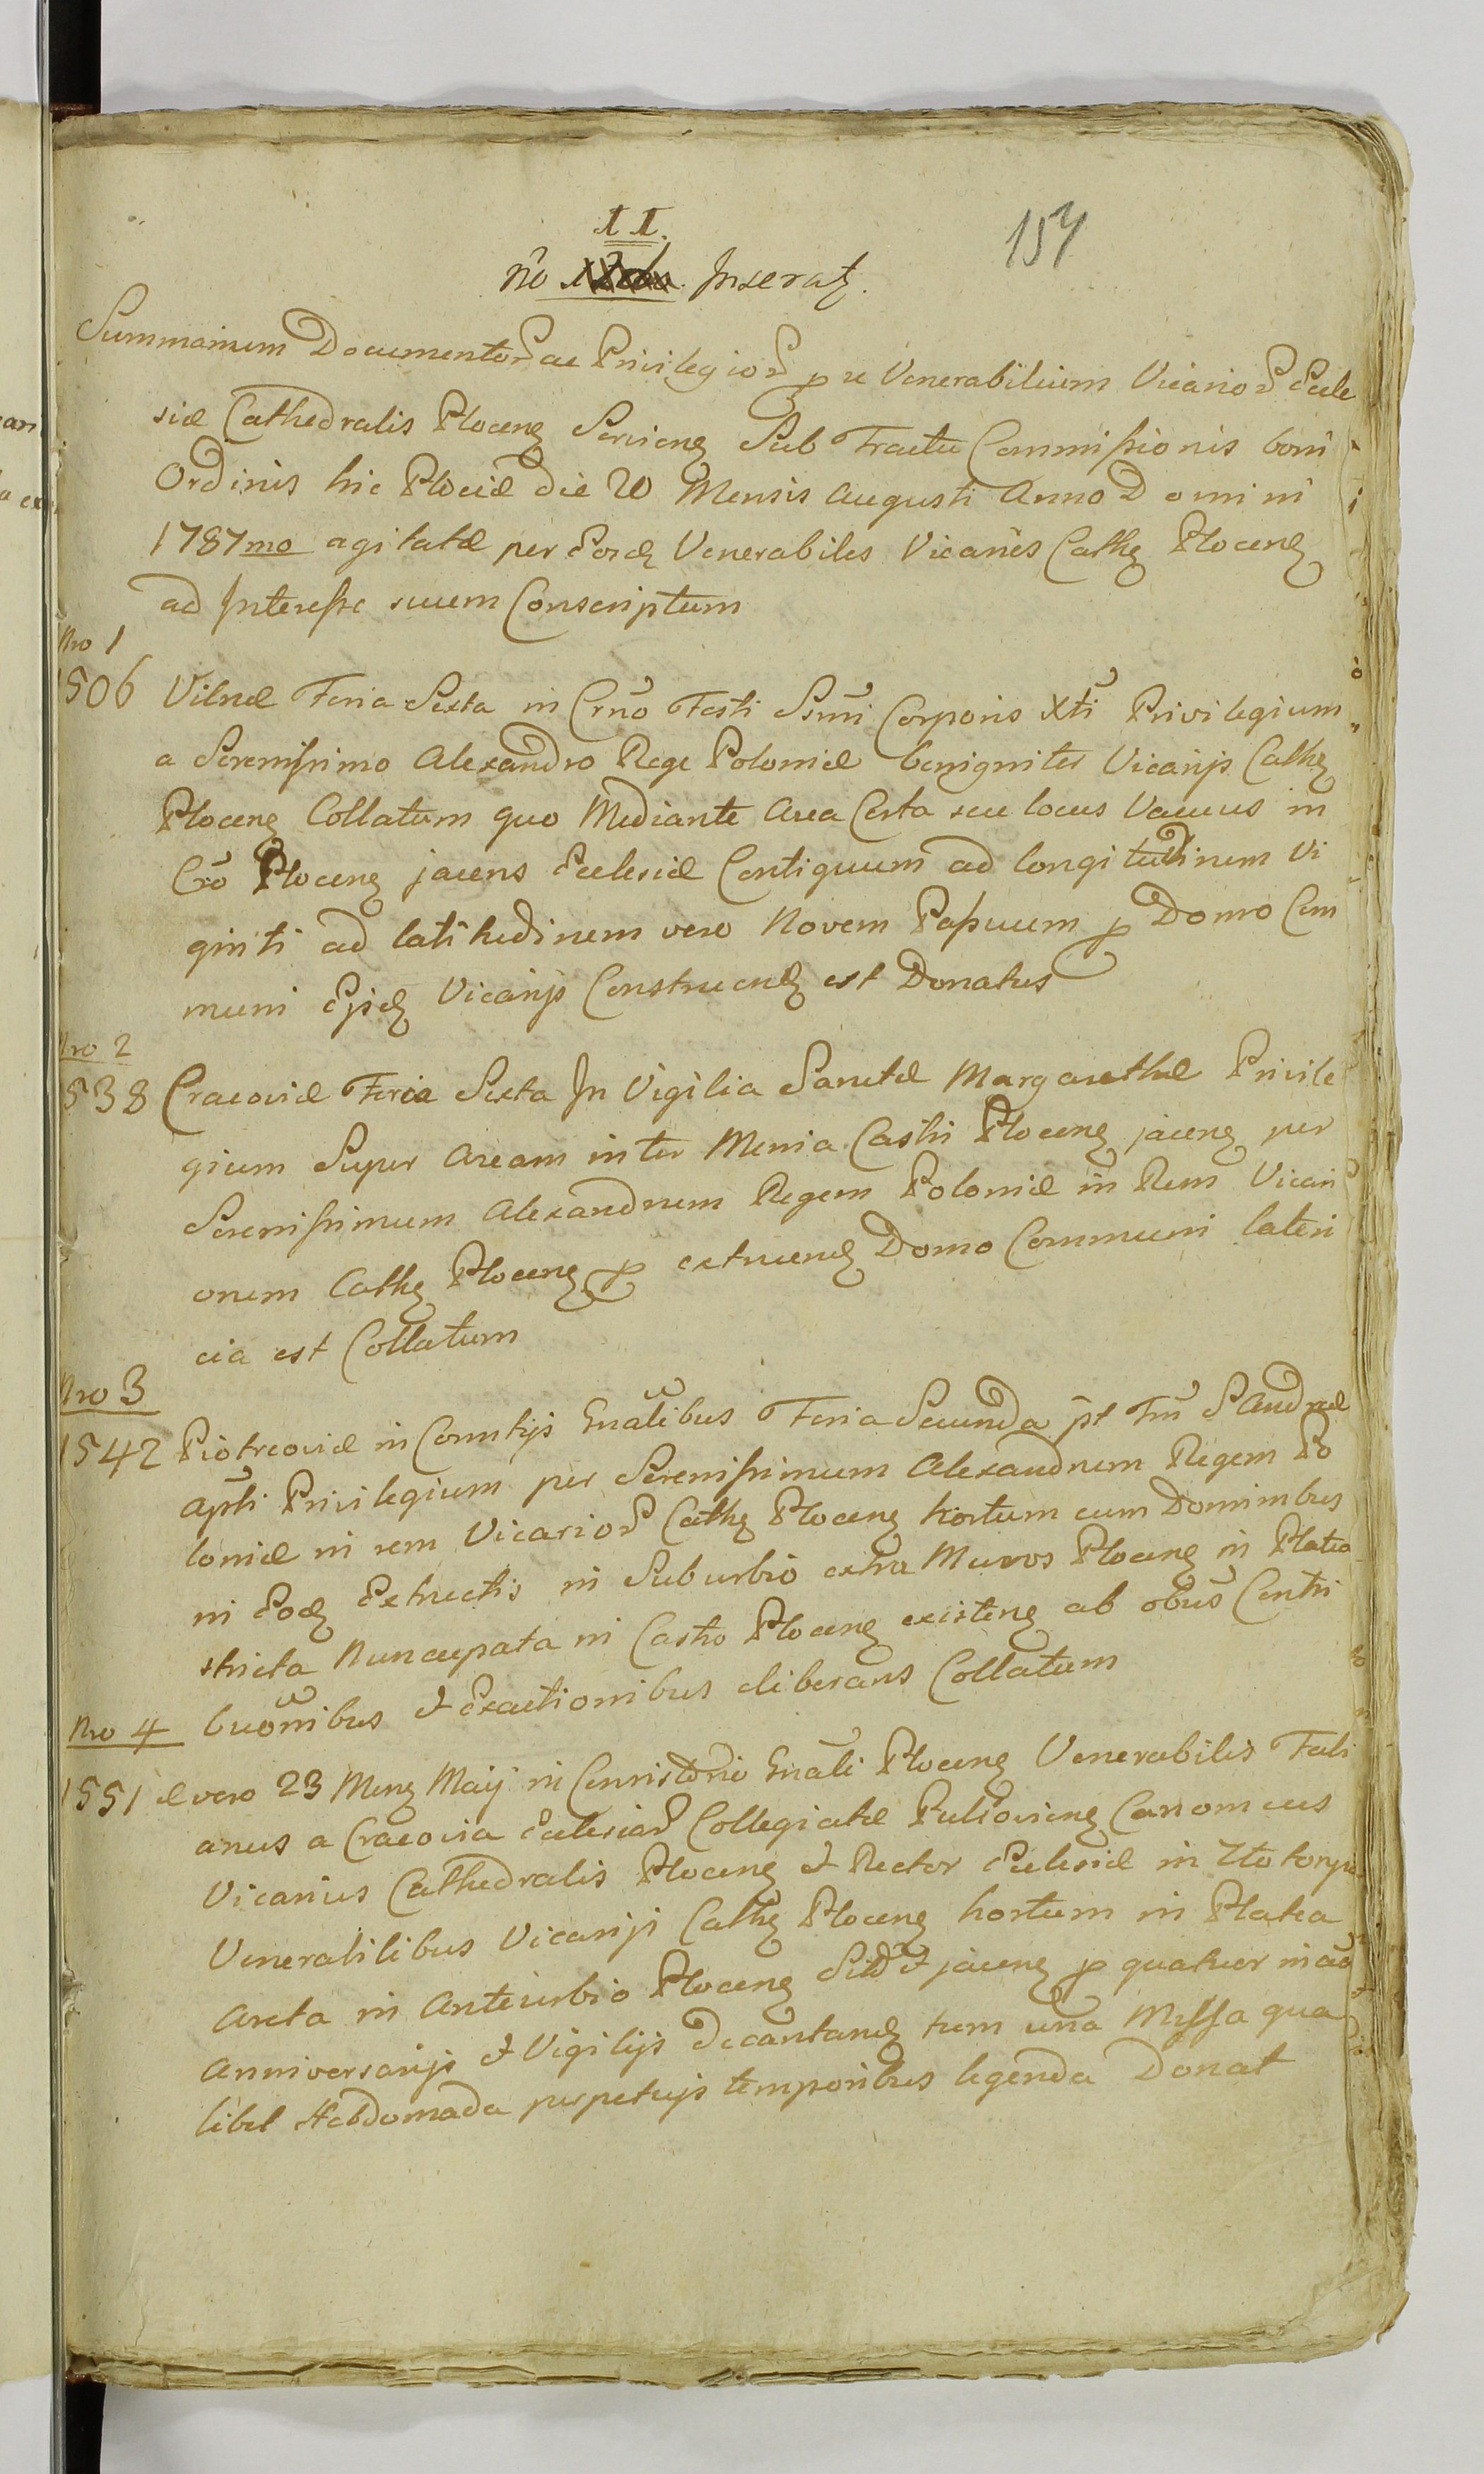 11.
157
nō Inseratȝ.
Summarium Documentor͠ ac Privilegior͠ p re Venerabilium Vicarior͠ Eccle
siæ Cathedralis Plocenȝ Servienȝ Sub Tractu Commissionis boni
Ordinis hic Plociæ die 20 Mensis Augusti Anno Domini
1787mo agitatæ per Eosdȝ Venerabiles Vicarios Cathȝ Plocenȝ
ad Interesse suum Conscriptum
Nro 1
1506 Vilnæ Feria Sexta in Crño Festi Ssmi Corporis Xti Privilegium
a Serenissimo Alexandro Rege Poloniæ benigniter Vicarijs Cathȝ
Plocenȝ Collatum quo Mediante Area Certa seu locus Vacuus in
Cro Plocenȝ jacens Ecclesiæ Contiguum ad longitudinem Vi
ginti ad latitudinem vero Novem Passuum p Domo Com
muni Ejsdȝ Vicarijs Construendȝ est Donatus
Nro 2
538 Cracoviæ Feria Sexta In Vigilia Sanctæ Margarethæ Privile
gium Super Aream inter Menia Castri Plocenȝ jacenȝ per
Serenissimum Alexandrum Regem Poloniæ in Rem Vicari
orum Cathȝ Plocenȝ p extruendȝ Domo Communi lateri
cia est Collatum
Nro 3
1542 Piotrcoviæ in Comitijs Gnālibus Feria Secunda pt Fm̄ S Andreæ
Apli Privilegium per Serenissimum Alexandrum Regem Po
loniæ in rem Vicarior͠ Cathȝ Plocenȝ hortum cum Domimbus
in Eodȝ Extructis in Suburbio extra Muros Plocenȝ in Platea
stricta Nuncupata in Castro Plocenȝ existenȝ ab obūs Contri
buōnibus & Exactionibus eliberans Collatum
Nro 4
1551 æ vero 23 Menȝ Maij in Consistorio Gnāli Plocenȝ Venerabilis Fabi
anus a Cracovia Ecclesiar͠ Collegiatæ Pultovienȝ Canonicus
Vicarius Cathedralis Plocenȝ & Rector Ecclesiæ in
Venerabilibus Vicarijs Cathȝ Plocenȝ hortum in Platea
Arcta in Anteurbio Plocenȝ Sitū & jacenȝ p quatuor in
Anniversarijs & Vigilijs decantandȝ tum una Missa qua
libet Hebdomada perpetujs temporibus legenda Donat